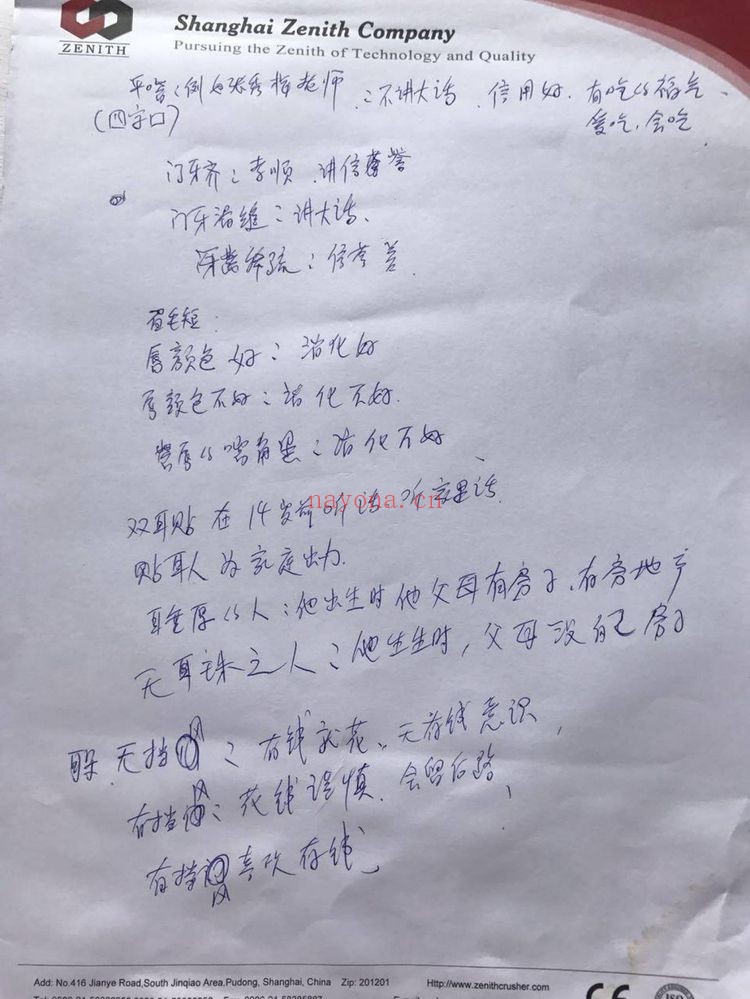 ZENITH
Shanghai Zenith Company
Pursuing the Zenith of Technology and Quality
平嘴：例如张秀梅老师：不讲大话 信用好. 有吃的福气
(四字口) 爱吃, 会吃
门牙齐：孝顺 讲信誉
门牙有缝：讲大话.
牙齿稀疏：信誉差.
眉毛短:
唇颜色好：消化好
唇颜色不好：消化不好.
嘴角黑：消化不好
双耳贴 在14岁前听话 听家里话.
nayona.cn
贴耳人 为家庭出力.
耳垂厚的人：他出生时他父母有房子, 有房地产
无耳珠之人：他生时, 父母没自己房子
无挡：有钱就花, 无存钱意识,
有挡：花钱谨慎. 会留后路,
有挡 喜欢存钱
Add: No.416 Jianye Road,South Jinqiao Area,Pudong, Shanghai, China Zip: 201201 Http://www.zenithcrusher.com
CE
ISO